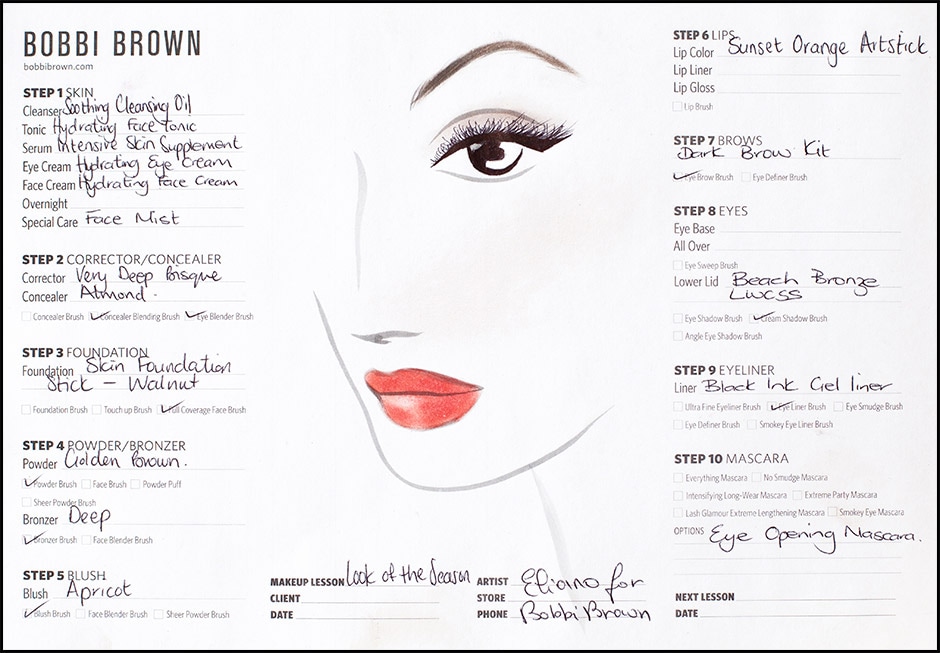 BOBBI BROWN
bobbibrown.com
STEP 1 SKIN
Cleanser Soothing Cleansing Oil
Tonic Hydrating Face Tonic
Serum Intensive Skin Supplement
Eye Cream Hydrating Eye Cream
Face Cream Hydrating Face Cream
Overnight
Special Care Face Mist
STEP 2 CORRECTOR/CONCEALER
Corrector Very Deep Bisque
Concealer Almond.
Concealer Brush Concealer Blending Brush Eye Blender Brush
STEP 3 FOUNDATION
Foundation Skin Foundation
Stick – Walnut
Foundation Brush Touch up Brush Full Coverage Face Brush
STEP 4 POWDER/BRONZER
Powder Golden Brown.
Powder Brush Face Brush Powder Puff
Sheer Powder Brush
Bronzer Deep
Bronzer Brush Face Blender Brush
STEP 5 BLUSH
Blush Apricot
Blush Brush Face Blender Brush Sheer Powder Brush
MAKEUP LESSON Look of the Season
CLIENT
DATE
ARTIST Eliano for
STORE
PHONE Bobbi Brown
STEP 6 LIPS
Lip Color Sunset Orange Artstick
Lip Liner
Lip Gloss
Lip Brush
STEP 7 BROWS
Dark Brow Kit
Eye Brow Brush Eye Definer Brush
STEP 8 EYES
Eye Base
All Over
Eye Sweep Brush
Lower Lid Beach Bronze
LWCSS
Eye Shadow Brush Cream Shadow Brush
Angle Eye Shadow Brush
STEP 9 EYELINER
Liner Black Ink Gel liner
Ultra Fine Eyeliner Brush Eye Liner Brush Eye Smudge Brush
Eye Definer Brush Smokey Eye Liner Brush
STEP 10 MASCARA
Everything Mascara No Smudge Mascara
Intensifying Long-Wear Mascara Extreme Party Mascara
Lash Glamour Extreme Lengthening Mascara Smokey Eye Mascara
OPTIONS Eye Opening Mascara.
NEXT LESSON
DATE